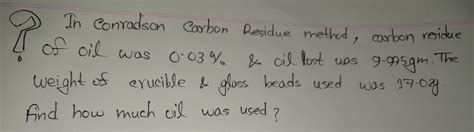 ? In Conradson Carbon Residue method, carbon residue
of oil was 0.03% & oil lost was 9.995gm. The
weight of crucible & glass beads used was 17.02g.
find how much oil was used?